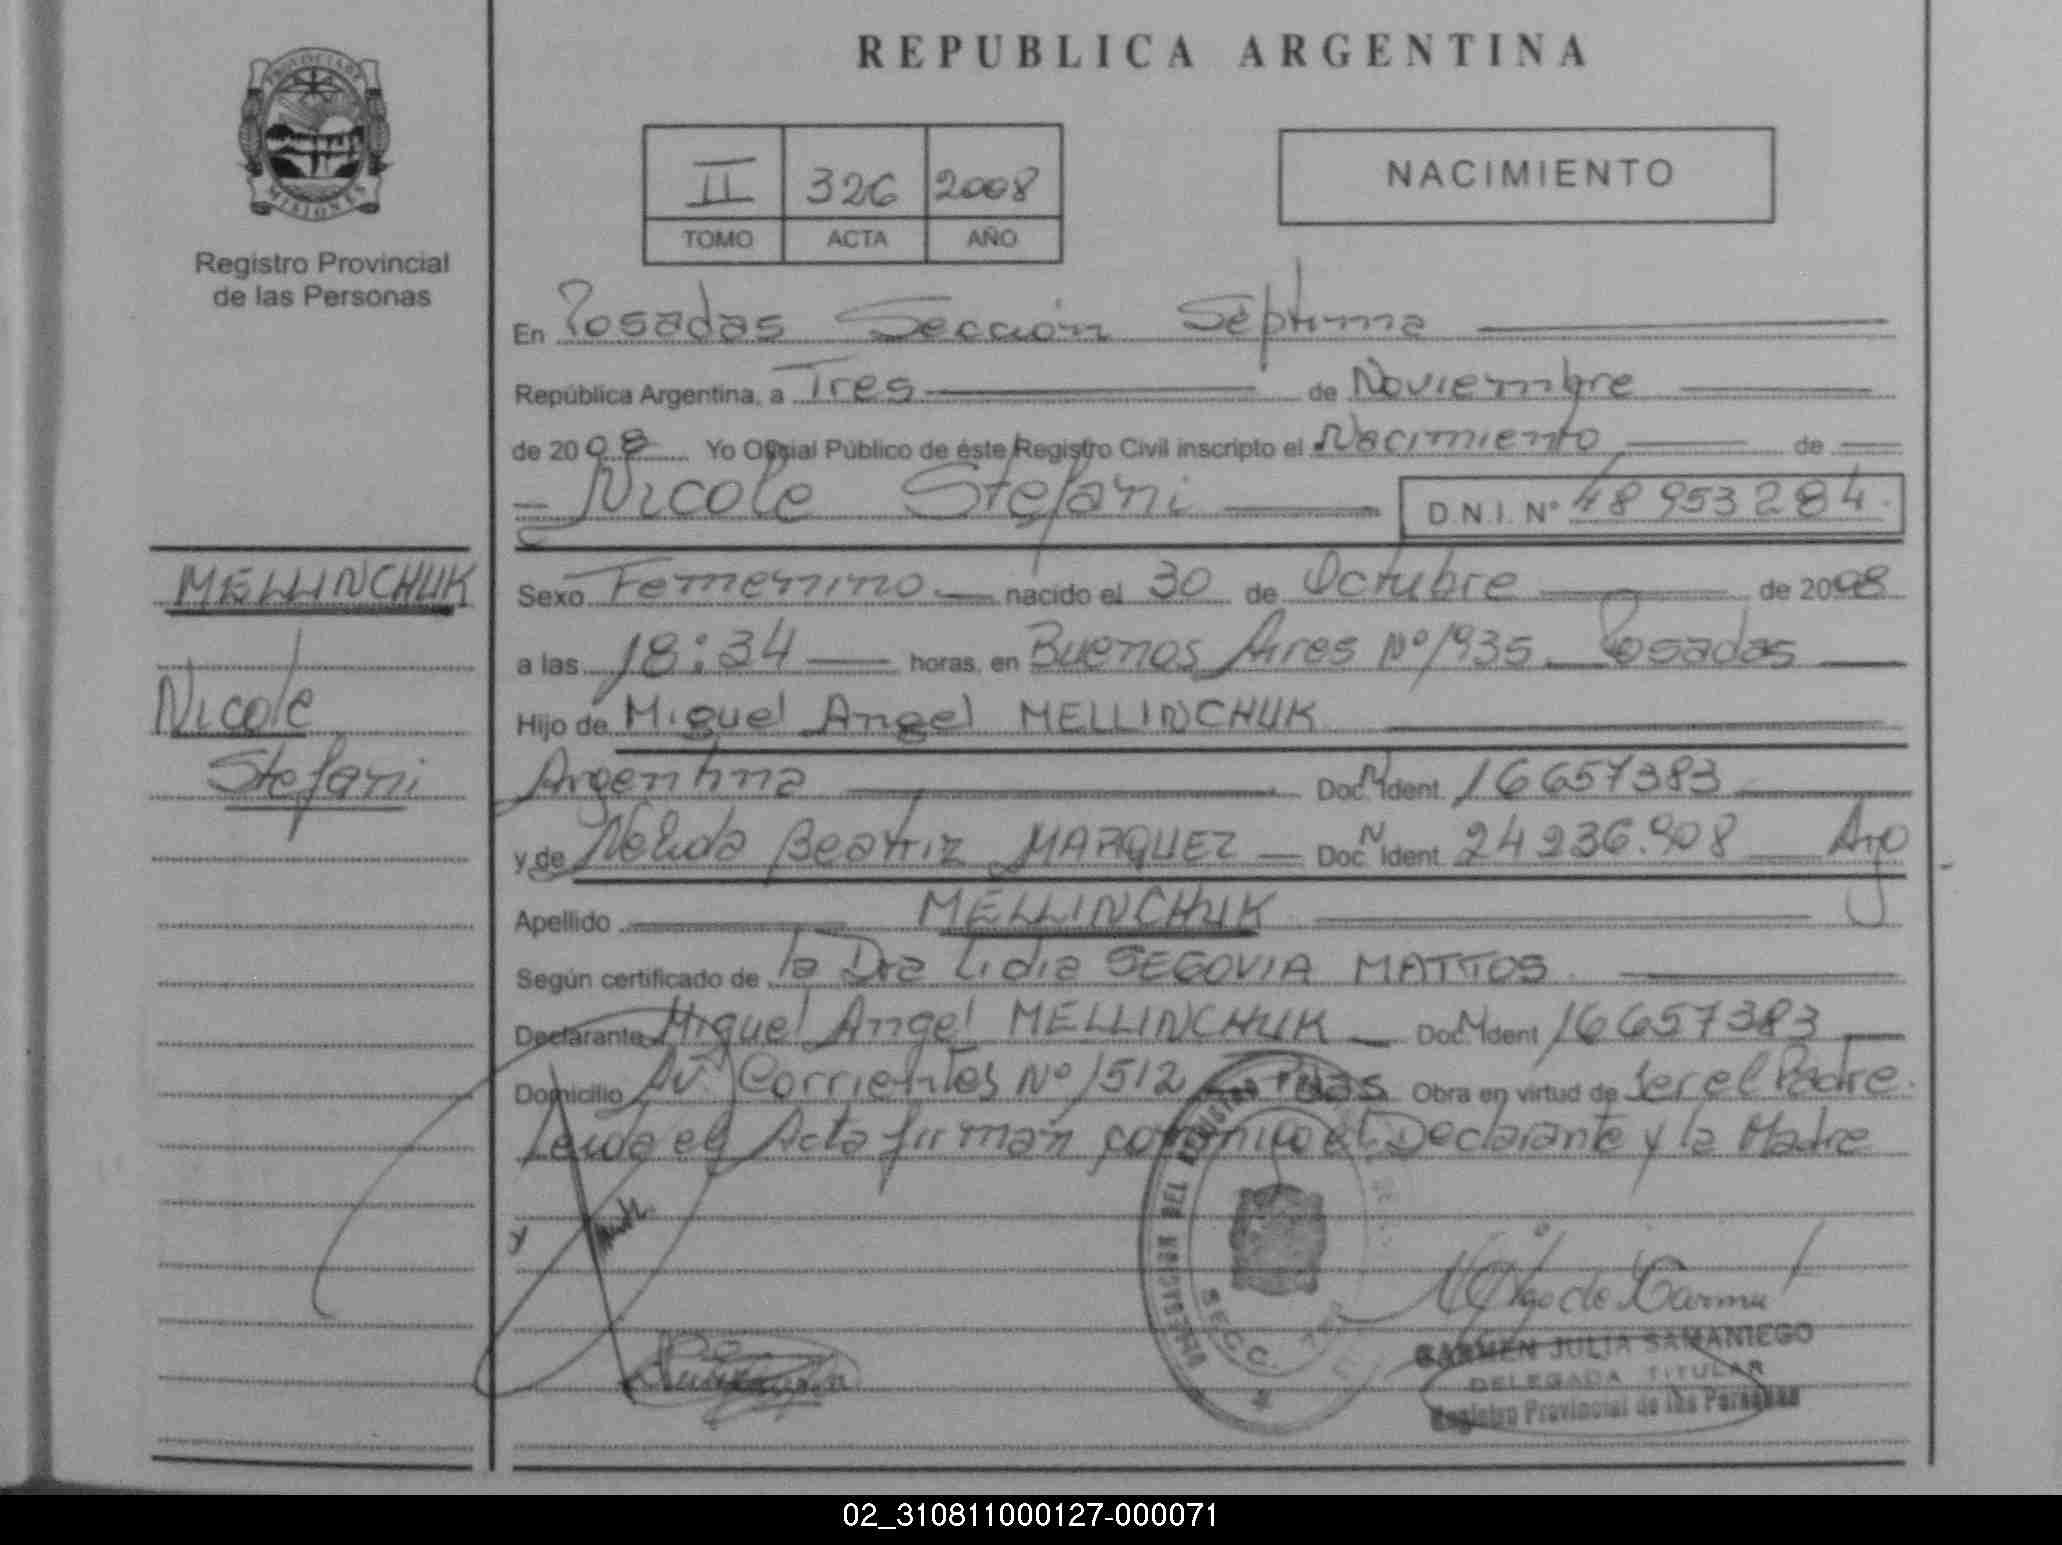 REPUBLICA ARGENTINA
PROVINCIA DE
MISIONES
Registro Provincial
de las Personas
II 326 2008
TOMO ACTA AÑO
NACIMIENTO
En Posadas Sección Séptima
República Argentina, a Tres de Noviembre
de 2008 Yo Oficial Público de éste Registro Civil inscripto el Nacimiento de
Nicole Stefani D.N.I. Nº 48953284.
MELLINCHUK
Nicole
Stefani
Sexo Femenino nacido el 30 de Octubre de 2008
a las 18:34 horas, en Buenos Aires Nº 1935 Posadas
Hijo de Miguel Angel MELLINCHUK
Argentina Doc. N Ident. 16657383
y de Nelida Beatriz MARQUEZ Doc. N Ident. 24236.908 Arg
Apellido MELLINCHUK
Según certificado de la Dra Lidia SEGOVIA MATTOS
Declarante Miguel Angel MELLINCHUK Doc. N Ident 16657383
Domicilio Av. Corrientes Nº 1512 Obra en virtud de ser el Padre.
Leida el Acta firman conmigo el Declarante y la Madre
y
SECC.
CARMEN JULIA SAMANIEGO
DELEGADA TITULAR
Registro Provincial de las Personas
02_310811000127-000071